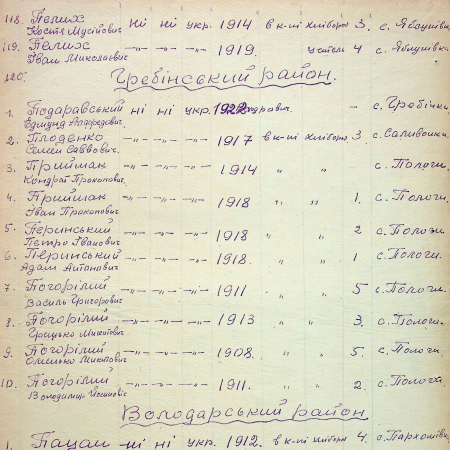 118. Пелих ні ні укр. 1914 в к-пі хлібороб 3. с. Яблунівка
Костя Мусійович
119. Пелих —"— —"— —"— 1919. учитель 4 с. Яблунівка
Іван Миколаєвич
120.
Гребінський район.
1. Подаравський ні ні укр. 1922 — с. Гребінки
Едмунд Альфредович
2. Плоденко —"— —"— —"— 1917 в к-пі хлібороб 3 с. Саливонки
Семен Саввович
3. Приймак —"— —"— —"— 1914 " " с. Пологи
Кондрат Прокопович
4. Приймак —"— —"— —"— 1918 " " 1. с. Пологи.
Іван Прокопович
5. Перинський —"— —"— —"— 1918 " " 2 с. Пологи
Петро Іванович
6. Перинський —"— —"— —"— 1918. " " 1 с. Пологи.
Адам Антонович
7. Погорілий —"— —"— —"— 1911 " " 5 с. Пологи
Василь Григорович
8. Погорілий —"— —"— —"— 1913 " " 3. с. Пологи.
Грицько Микитович
9. Погорілий —"— —"— —"— 1908. " " 5. с. Пологи.
Олелько Микитович
10. Погорілий —"— —"— —"— 1911. " " 2. с. Полога
Володимир
Володарський район
1. Пацан ні ні укр. 1912. в к-пі хлібороб 4. с. Пархомівка